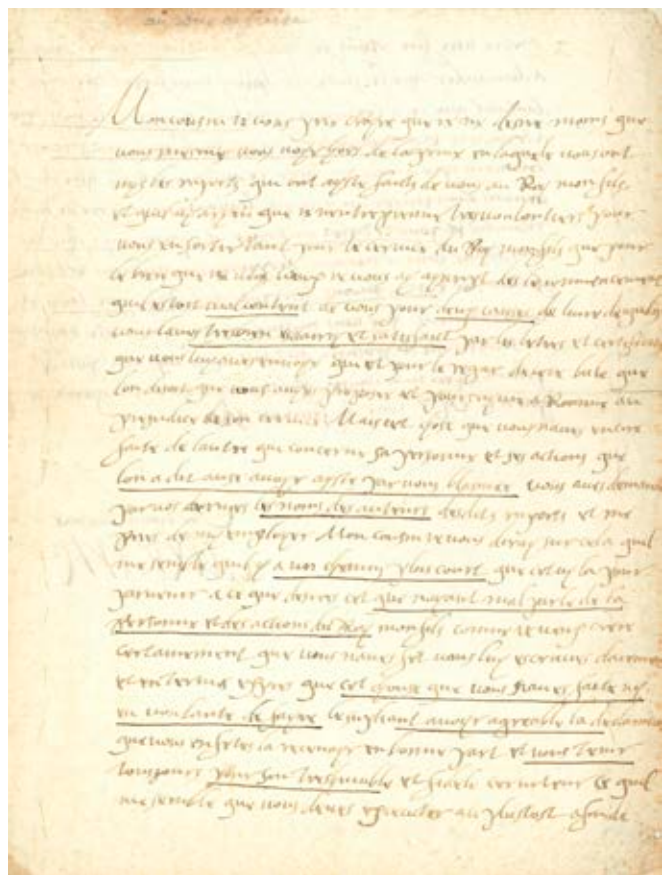 Mon cousin je vous prie croyre que je ne desire moins que
vous mesmes vous voyr hors de la peine en laquele vous ont
mys les raports qui ont esté faicts de vous au Roy mon fils
et que je n'entrepreine tres voulontiers pour
vous en sortir tant pour le cervice du Roy monfils que pour
le bien que je vous ay des le commencement
qui estoit malcontent de vous pour deus causes de lune desqueles
vous laves tresbien esclarcy et satisfaict par les letres et certificats
que vous luy aves envoyé qui est pour le regar de que
lon disoit que vous avyes proposer et a Romme au
prejudice de son cervice Mais cet chose que vous naves encore
faicte de lautre qui concerne sa personne et ses actions que
lon a dit avoyr esté par vous blamee vous aves demandé
par vos les noms des auteurs desdits raports et me
pries de my employer Mon cousin je vous diray sur cela quil
me semble quil y a un chemin plus court que celuy la pour
parvenir a ce que desires cet que nayant mal parlé de la
personne et des actions du Roy monfils comme je veus croire
certainement que vous naves fet vous luy escrivies
et en termes expres que cet chouse que vous naves faicte ny
eu voulanté de fayre le supliant avoyr agreable la declaration
que vous en fetes la recevoyr en bonne part et vous tenir
tousjours pour son treshumble et fidele cerviteur ce quil
me semble que vous deves executer au plustost afin de